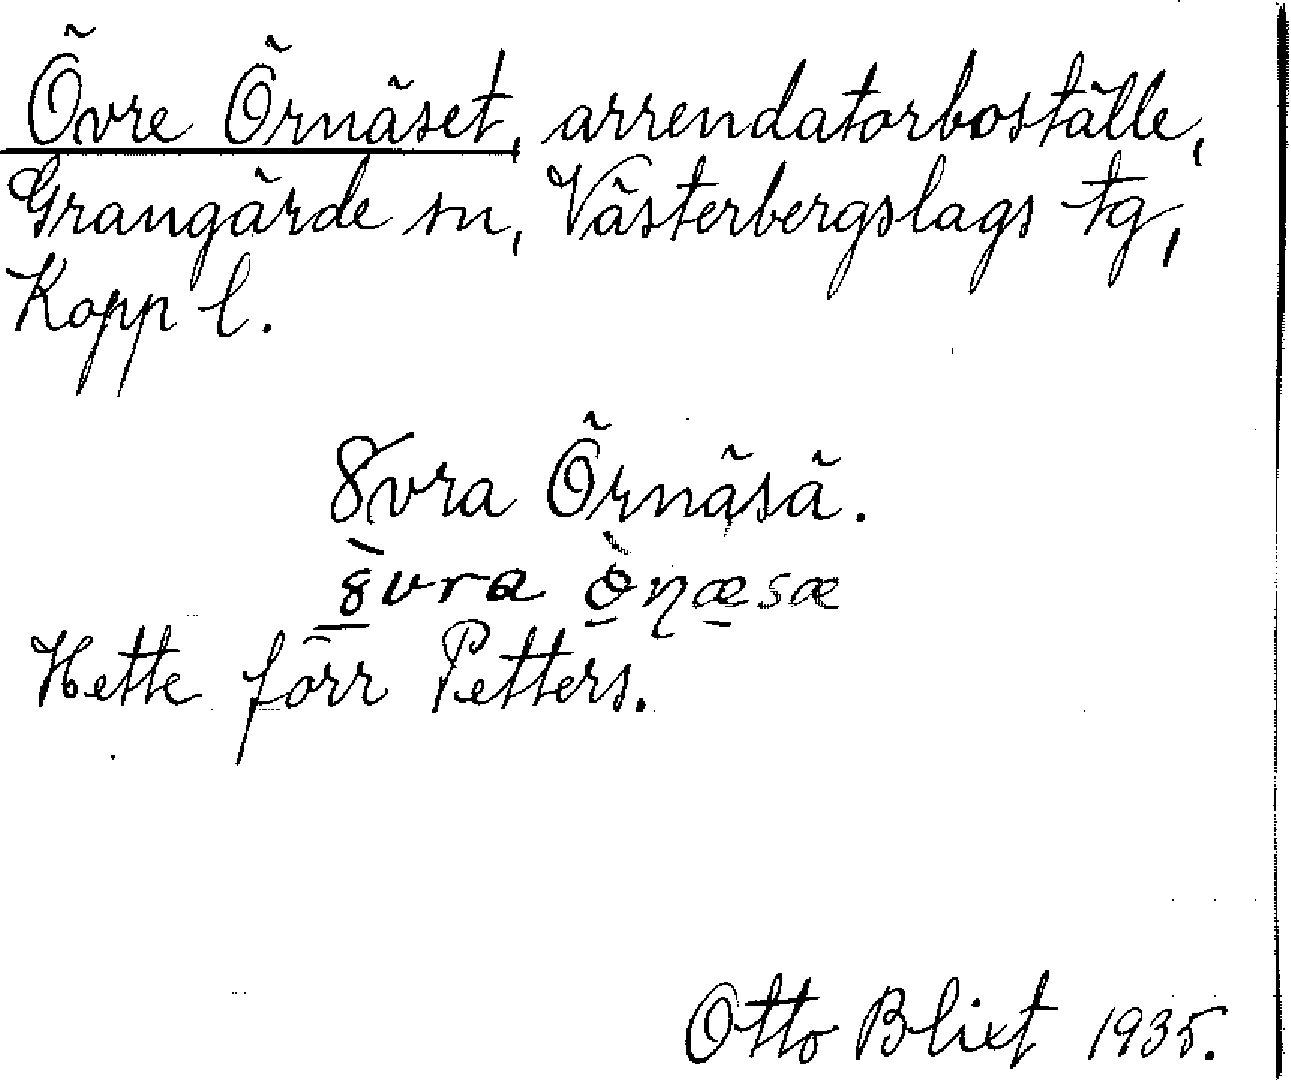 Övre Örnäset, arrendatorboställe,
Grangärde sn, Västerbergslags tg,
Kopp l.
8vra Örnäsä.
ȣ̀vra ɵ̀ɳæsæ
Hette förr Petters.
Otto Blixt 1935.